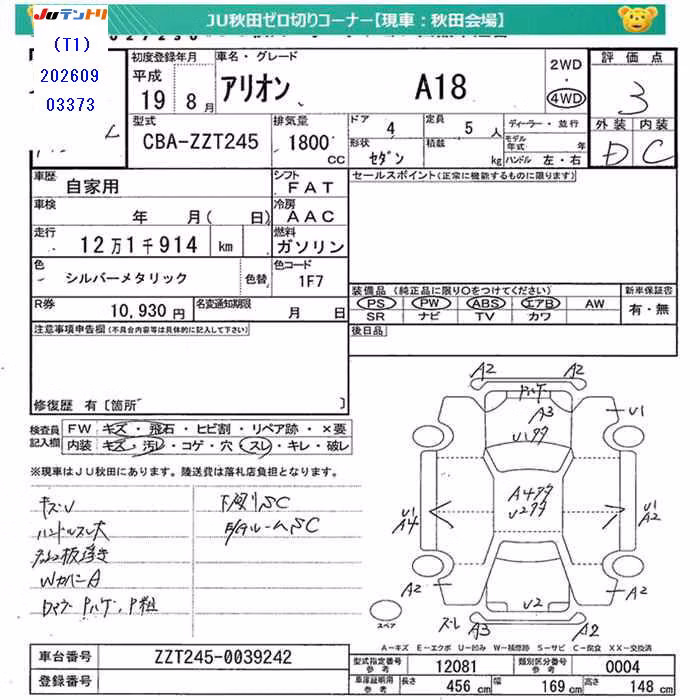 JUテントリ
JU秋田ゼロ切りコーナー【現車：秋田会場】
(T1)
202609
03373
初度登録年月
平成
19 8月
車名・グレード
アリオン A18
2WD
・
4WD
評価点
3
型式
CBA-ZZT245
排気量
1800 CC
ドア 4
定員 5 人
ディーラー・並行
形状 セダン
積載 kg
モデル年式 年
ハンドル 左・右
外装 内装
D C
車歴 自家用
シフト FAT
セールスポイント(正常に機能するものに限ります)
車検 年 月( 日)
冷房 AAC
走行 12万1千914 km
燃料 ガソリン
色 シルバーメタリック 色替
色コード 1F7
装備品(純正品に限り〇をつけてください)
新車保証書
PS PW ABS エアB AW
有・無
SR ナビ TV カワ
R券 10,930円
名変通知期限 月 日
後日品
注意事項申告欄(不具合内容等は具体的に記入して下さい)
修復歴 有〔箇所 〕
検査員記入欄
FW キズ・飛石・ヒビ割・リペア跡・×要
内装 キズ・汚レ・コゲ・穴・スレ・キレ・破レ
※現車はJU秋田にあります。陸送費は落札店負担となります。
キズU
ハンドルスレ大
下廻りSC
WカバーA
A2 A2
A3
U1
U1
A4
U1
A2
A2
U2
A2
スレ A3 A2
スペア
A－キズ E－エクボ U－凹み W－補修跡 S－サビ C－腐食 XX－交換済
車台番号 ZZT245-0039242
登録番号
型式指定番号 参考 12081
類別区分番号 参考 0004
車庫証明用 参考 長さ 456 cm 幅 169 cm 高さ 148 cm